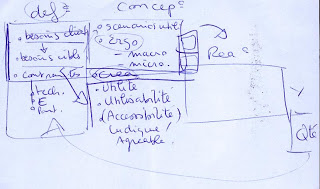 def°
Concep°
• besoins client
• besoins utils
• contraintes
• tech.
• E
• scenarii util
• Ergo
- macro
- micro.
• Créa
• Utilité
• Utilisabilité
(Accessibilité)
Ludique /
Agréable
Réa°
Qté